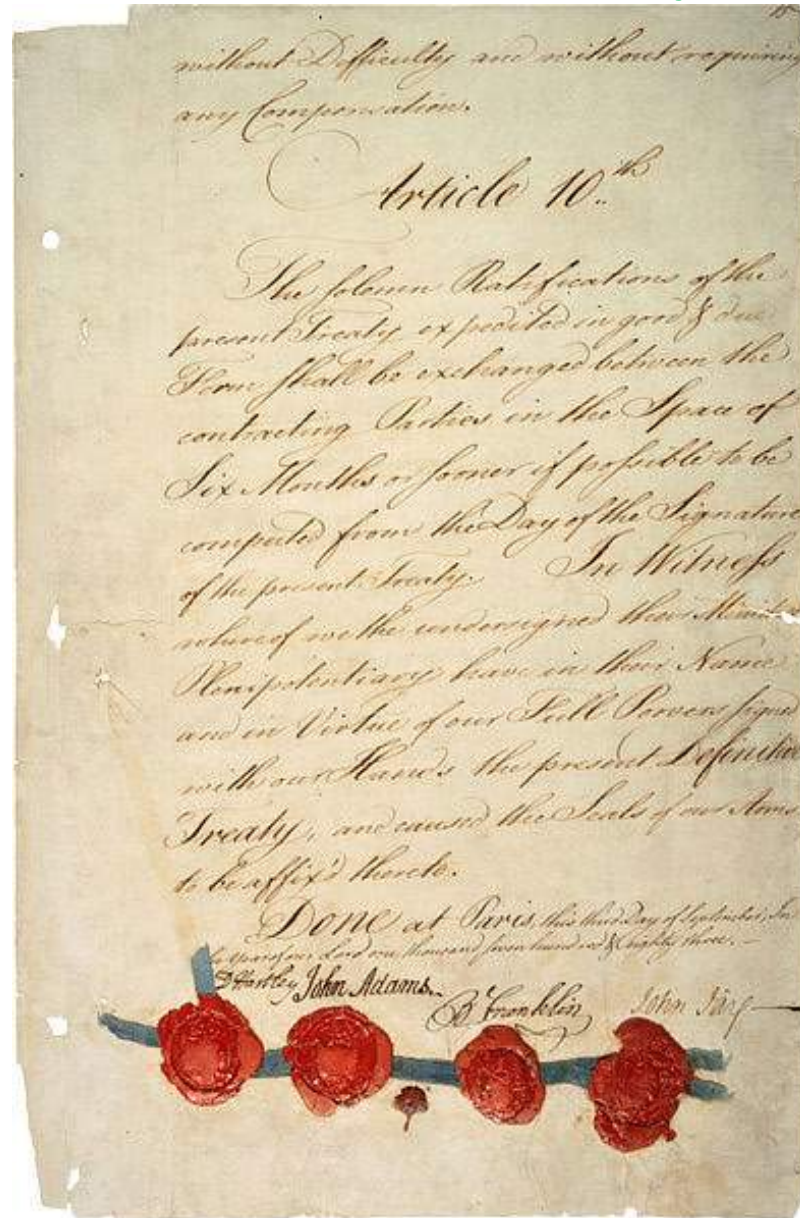 15
without Difficulty and without requiring
any Compensation.
Article 10.th
The solemn Ratifications of the
present Treaty expedited in good & due
Form shall be exchanged between the
contracting Parties in the Space of
Six Months or sooner if possible to be
computed from the Day of the Signature
of the present Treaty. In Witness
whereof we the undersigned their Ministers
Plenipotentiary have in their Name
and in Virtue of our Full Powers signed
with our Hands the present Definitive
Treaty, and caused the Seals of our Arms
to be affix'd thereto.
DONE at Paris, this third Day of September, In
the Year of our Lord one thousand seven hundred & eighty three.—
D Hartley John Adams. B Franklin John Jay